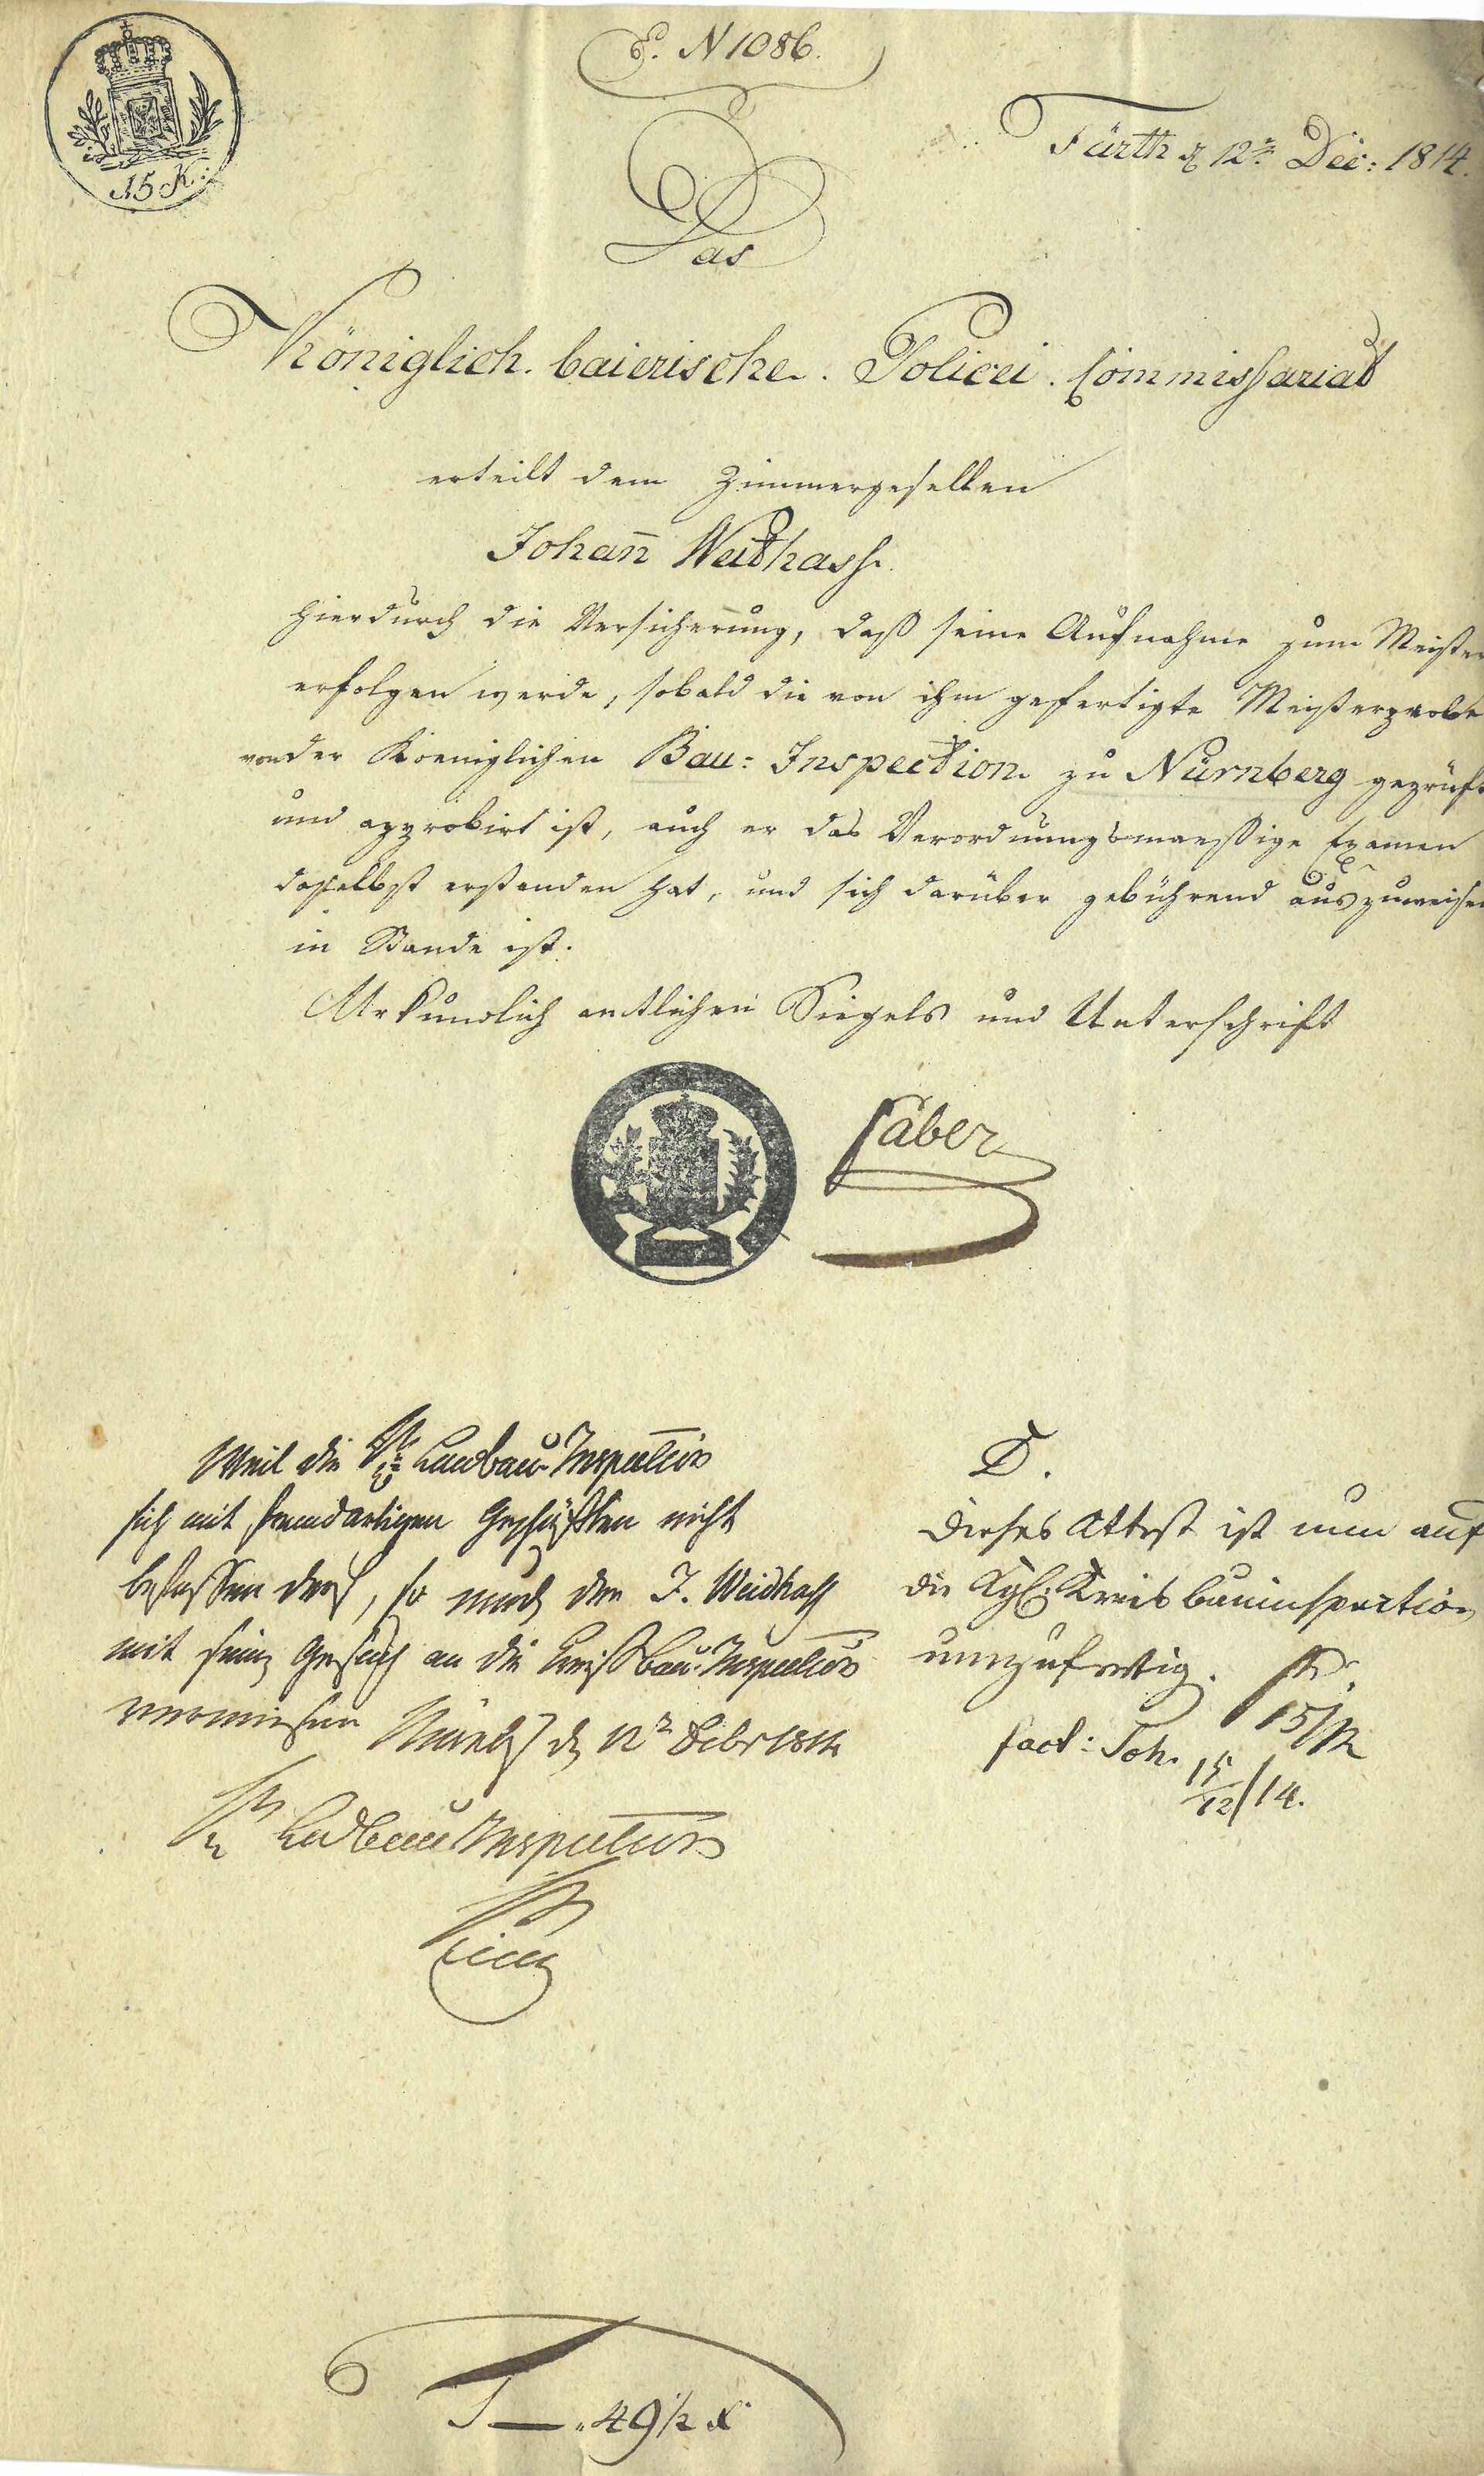 15 K:
E. N 1086.
Fürth d 12n Dec: 1814.
Das
Königlich. baierische. Policei. Commissariat
erteilt dem Zimmergesellen
Johan̄ Weithass.
hierdurch die Versicherung, daß seine Aufnahme zum Meister
erfolgen werde, sobald die von ihm gefertigte Meisterprobe
von der Koeniglichen Bau: Inspection zu Nürnberg geprüft
und approbirt ist, auch er das Verordnungsmaessige Examen
daselbst erstanden hat, und sich darüber gebührend auszuweisen
in Stande ist.
Urkundlich amtlichen Siegels und Unterschrift
Faber
Weil die Landbau-Inspection
sich mit fremdartigen Geschäften nicht
befassen darf, so wird der J. Weidhass
mit seinem Gesuch an die Kreisbau-Inspection
verwiesen Nürnbg d 12n Decbr 1814
Landbau Inspection
D.
Dieses Attest ist nun auf
die Kgl. Kreisbauinspection
umzufertig.
15/12
fact: Joh. 15/12/14.
49 1/2 x